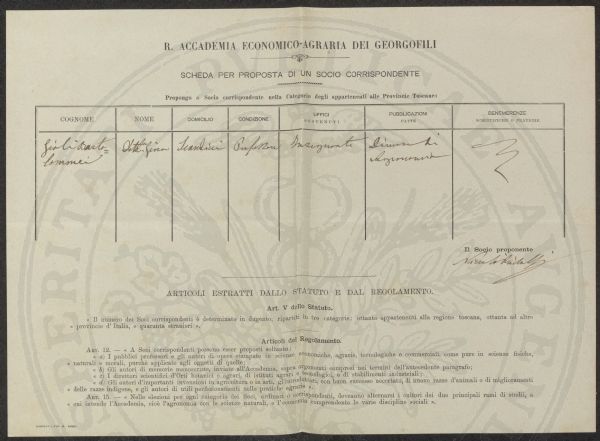 R. ACCADEMIA ECONOMICO-AGRARIA DEI GEORGOFILI
SCHEDA PER PROPOSTA DI UN SOCIO CORRISPONDENTE
Propongo a Socio corrispondente nella Categoria degli appartenenti alle Provincie Toscane:
COGNOME NOME DOMICILIO CONDIZIONE UFFICI SOSTENUTI PUBBLICAZIONI FATTE BENEMERENZE SCIENTIFICHE O PRATICHE
Gino Scandicci Professore Insegnante Diverse di
Agronomia
Il Socio proponente
ARTICOLI ESTRATTI DALLO STATUTO E DAL REGOLAMENTO.
Art. V dello Statuto.
« Il numero dei Soci corrispondenti è determinato in dugento, ripartiti in tre categorie: ottanta appartenenti alla regione toscana, ottanta ad altre
« provincie d'Italia, e quaranta stranieri ».
Articoli del Regolamento.
ART. 12. — « A Soci corrispondenti possono esser proposti soltanto:
« a) I pubblici professori e gli autori di opere stampate in scienze economiche, agrarie, tecnologiche o commerciali come pure in scienze fisiche,
« naturali e morali, purchè applicate agli oggetti di quelle;
« b) Gli autori di memorie manoscritte, inviate all'Accademia, sopra argomenti compresi nei termini dell'antecedente paragrafo;
« c) I direttori scientifici d'Orti Botanici e agrari, di istituti agrari e tecnologici, e di stabilimenti industriali;
« d) Gli autori d'importanti invenzioni in agricoltura o in arti, gl'introduttori, con buon successo accertato, di nuove razze d'animali o di miglioramenti
« delle razze indigene, e gli autori di utili perfezionamenti nelle pratiche agrarie ».
ART. 15. — « Nelle elezioni per ogni categoria dei Soci, ordinari o corrispondenti, dovranno alternarsi i cultori dei due principali rami di studii, a
« cui intende l'Accademia, cioè l'agronomia con le scienze naturali, e l'economia comprendente le varie discipline sociali ».